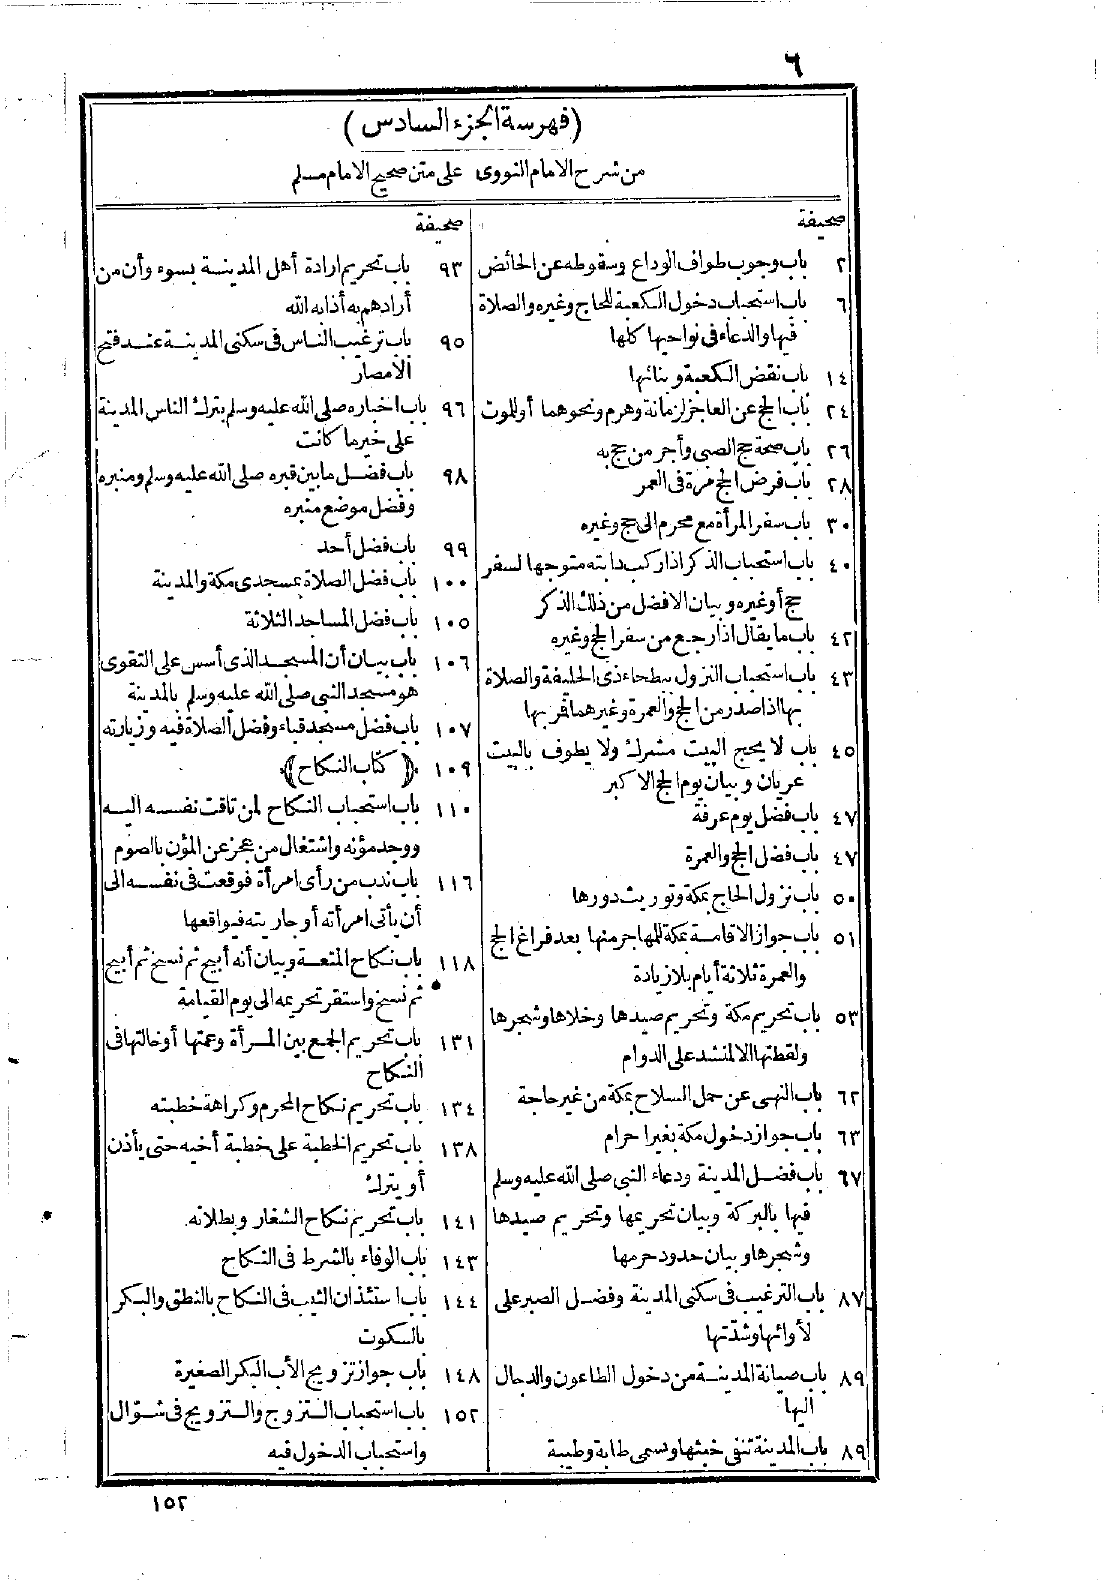 ٦
(فهرسة الجزء السادس)
من شرح الامام النووى على متن صحيح الامام مسلم
صحيفة
٢ باب وجوب طواف الوداع وسقوطه عن الحائض
٦ باب استحباب دخول الكعبة للحاج وغيره والصلاة
فيها والدعاء فى نواحيها كلها
١٤ باب نقض الكعبة وبنائها
٢٤ باب الحج عن العاجز لزمانة وهرم ونحوهما أو للموت
٢٦ باب صحة حج الصبى وأجر من حج به
٢٨ باب فرض الحج مرة فى العمر
٣٠ باب سفر المرأة مع محرم الى حج وغيره
٤٠ باب استحباب الذكر اذا ركب دابته متوجها لسفر
حج أو غيره وبيان الافضل من ذلك الذكر
٤٢ باب ما يقال اذا رجع من سفر الحج وغيره
٤٣ باب استحباب النزول ببطحاء ذى الحليفة والصلاة
بها اذا صدر من الحج والعمرة وغيرهما فمر بها
٤٥ باب لا يحج البيت مشرك ولا يطوف بالبيت
عريان وبيان يوم الحج الاكبر
٤٧ باب فضل يوم عرفة
٤٧ باب فضل الحج والعمرة
٥٠ باب نزول الحاج بمكة وتوريث دورها
٥١ باب جواز الاقامة بمكة للمهاجر منها بعد فراغ الحج
والعمرة ثلاثة أيام بلا زيادة
٥٣ باب تحريم مكة وتحريم صيدها وخلاها وشجرها
ولقطتها الا لمنشد على الدوام
٦٢ باب النهى عن حمل السلاح بمكة من غير حاجة
٦٣ باب جواز دخول مكة بغير احرام
٦٧ باب فضل المدينة ودعاء النبى صلى الله عليه وسلم
فيها بالبركة وبيان تحريمها وتحريم صيدها
وشجرها وبيان حدود حرمها
٨٧ باب الترغيب فى سكنى المدينة وفضل الصبر على
لأوائها وشدتها
٨٩ باب صيانة المدينة من دخول الطاعون والدجال
اليها
٨٩ باب المدينة تنفى خبثها وتسمى طابة وطيبة
صحيفة
٩٣ باب تحريم ارادة أهل المدينة بسوء وأن من
أرادهم به أذابه الله
٩٥ باب ترغيب الناس فى سكنى المدينة عند فتح
الأمصار
٩٦ باب اخباره صلى الله عليه وسلم بترك الناس المدينة
على خير ما كانت
٩٨ باب فضل ما بين قبره صلى الله عليه وسلم ومنبره
وفضل موضع منبره
٩٩ باب فضل أحد
١٠٠ باب فضل الصلاة بمسجدى مكة والمدينة
١٠٥ باب فضل المساجد الثلاثة
١٠٦ باب بيان أن المسجد الذى أسس على التقوى
هو مسجد النبى صلى الله عليه وسلم بالمدينة
١٠٧ باب فضل مسجد قباء وفضل الصلاة فيه وزيارته
١٠٩ ﴿كتاب النكاح﴾
١١٠ باب استحباب النكاح لمن تاقت نفسه اليه
ووجد مؤنه واشتغال من عجز عن المؤن بالصوم
١١٦ باب ندب من رأى امرأة فوقعت فى نفسه الى
أن يأتى امرأته أو جاريته فيواقعها
١١٨ باب نكاح المتعة وبيان أنه أبيح ثم نسخ ثم أبيح
ثم نسخ واستقر تحريمه الى يوم القيامة
١٣١ باب تحريم الجمع بين المرأة وعمتها أو خالتها فى
النكاح
١٣٤ باب تحريم نكاح المحرم وكراهة خطبته
١٣٨ باب تحريم الخطبة على خطبة أخيه حتى يأذن
أو يترك
١٤١ باب تحريم نكاح الشغار وبطلانه
١٤٣ باب الوفاء بالشرط فى النكاح
١٤٤ باب استئذان الثيب فى النكاح بالنطق والبكر
بالسكوت
١٤٨ باب جواز تزويج الأب البكر الصغيرة
١٥٢ باب استحباب التزوج والتزويج فى شوال
واستحباب الدخول فيه
١٥٢